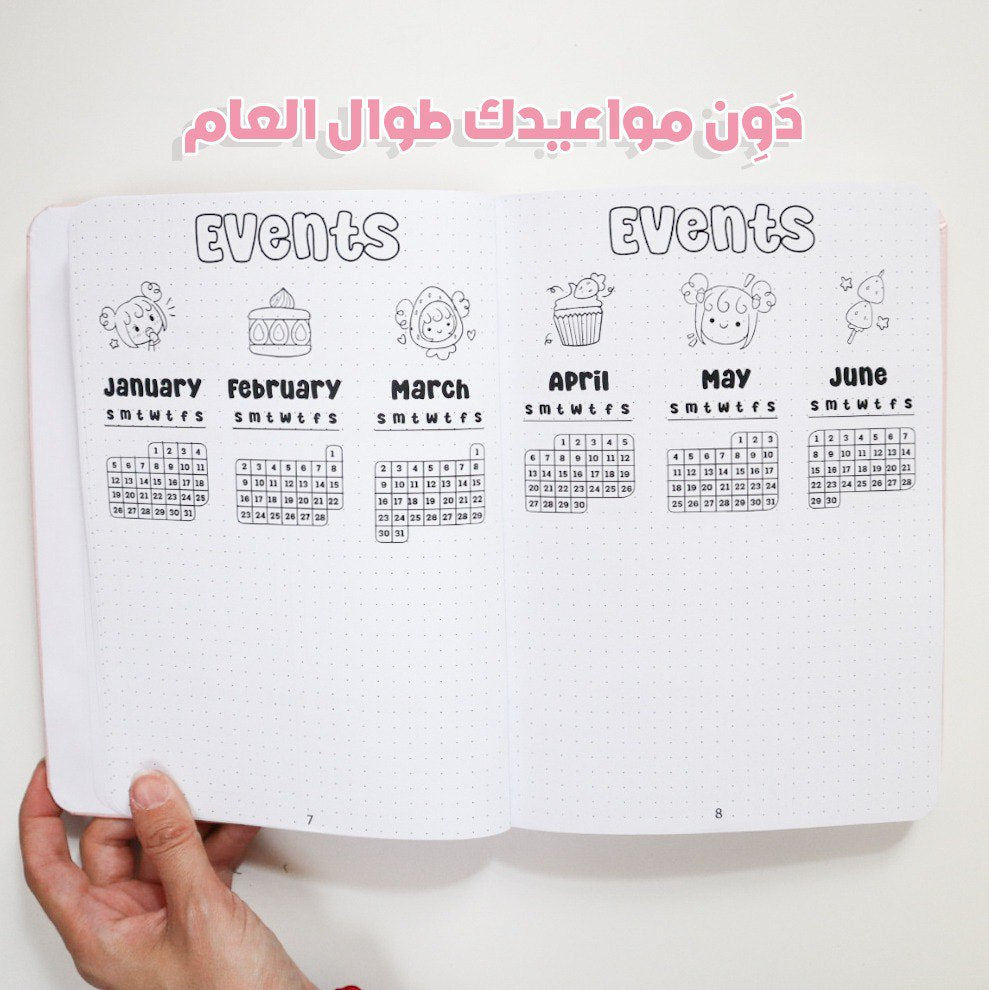 دَوِن مواعيدك طوال العام
Events
January
S m t W t f S
1 2 3 4
5 6 7 8 9 10 11
12 13 14 15 16 17 18
19 20 21 22 23 24 25
26 27 28 29 30 31
February
S m t W t f S
1
2 3 4 5 6 7 8
9 10 11 12 13 14 15
16 17 18 19 20 21 22
23 24 25 26 27 28
March
S m t W t f S
1
2 3 4 5 6 7 8
9 10 11 12 13 14 15
16 17 18 19 20 21 22
23 24 25 26 27 28 29
30 31
7
Events
April
S m t W t f S
1 2 3 4 5
6 7 8 9 10 11 12
13 14 15 16 17 18 19
20 21 22 23 24 25 26
27 28 29 30
May
S m t W t f S
1 2 3
4 5 6 7 8 9 10
11 12 13 14 15 16 17
18 19 20 21 22 23 24
25 26 27 28 29 30 31
June
S m t W t f S
1 2 3 4 5 6 7
8 9 10 11 12 13 14
15 16 17 18 19 20 21
22 23 24 25 26 27 28
29 30
8